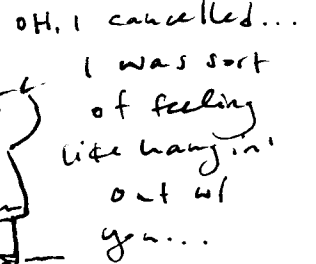 OH, I cancelled...
I was sort
of feeling
like hangin'
out w/
you...